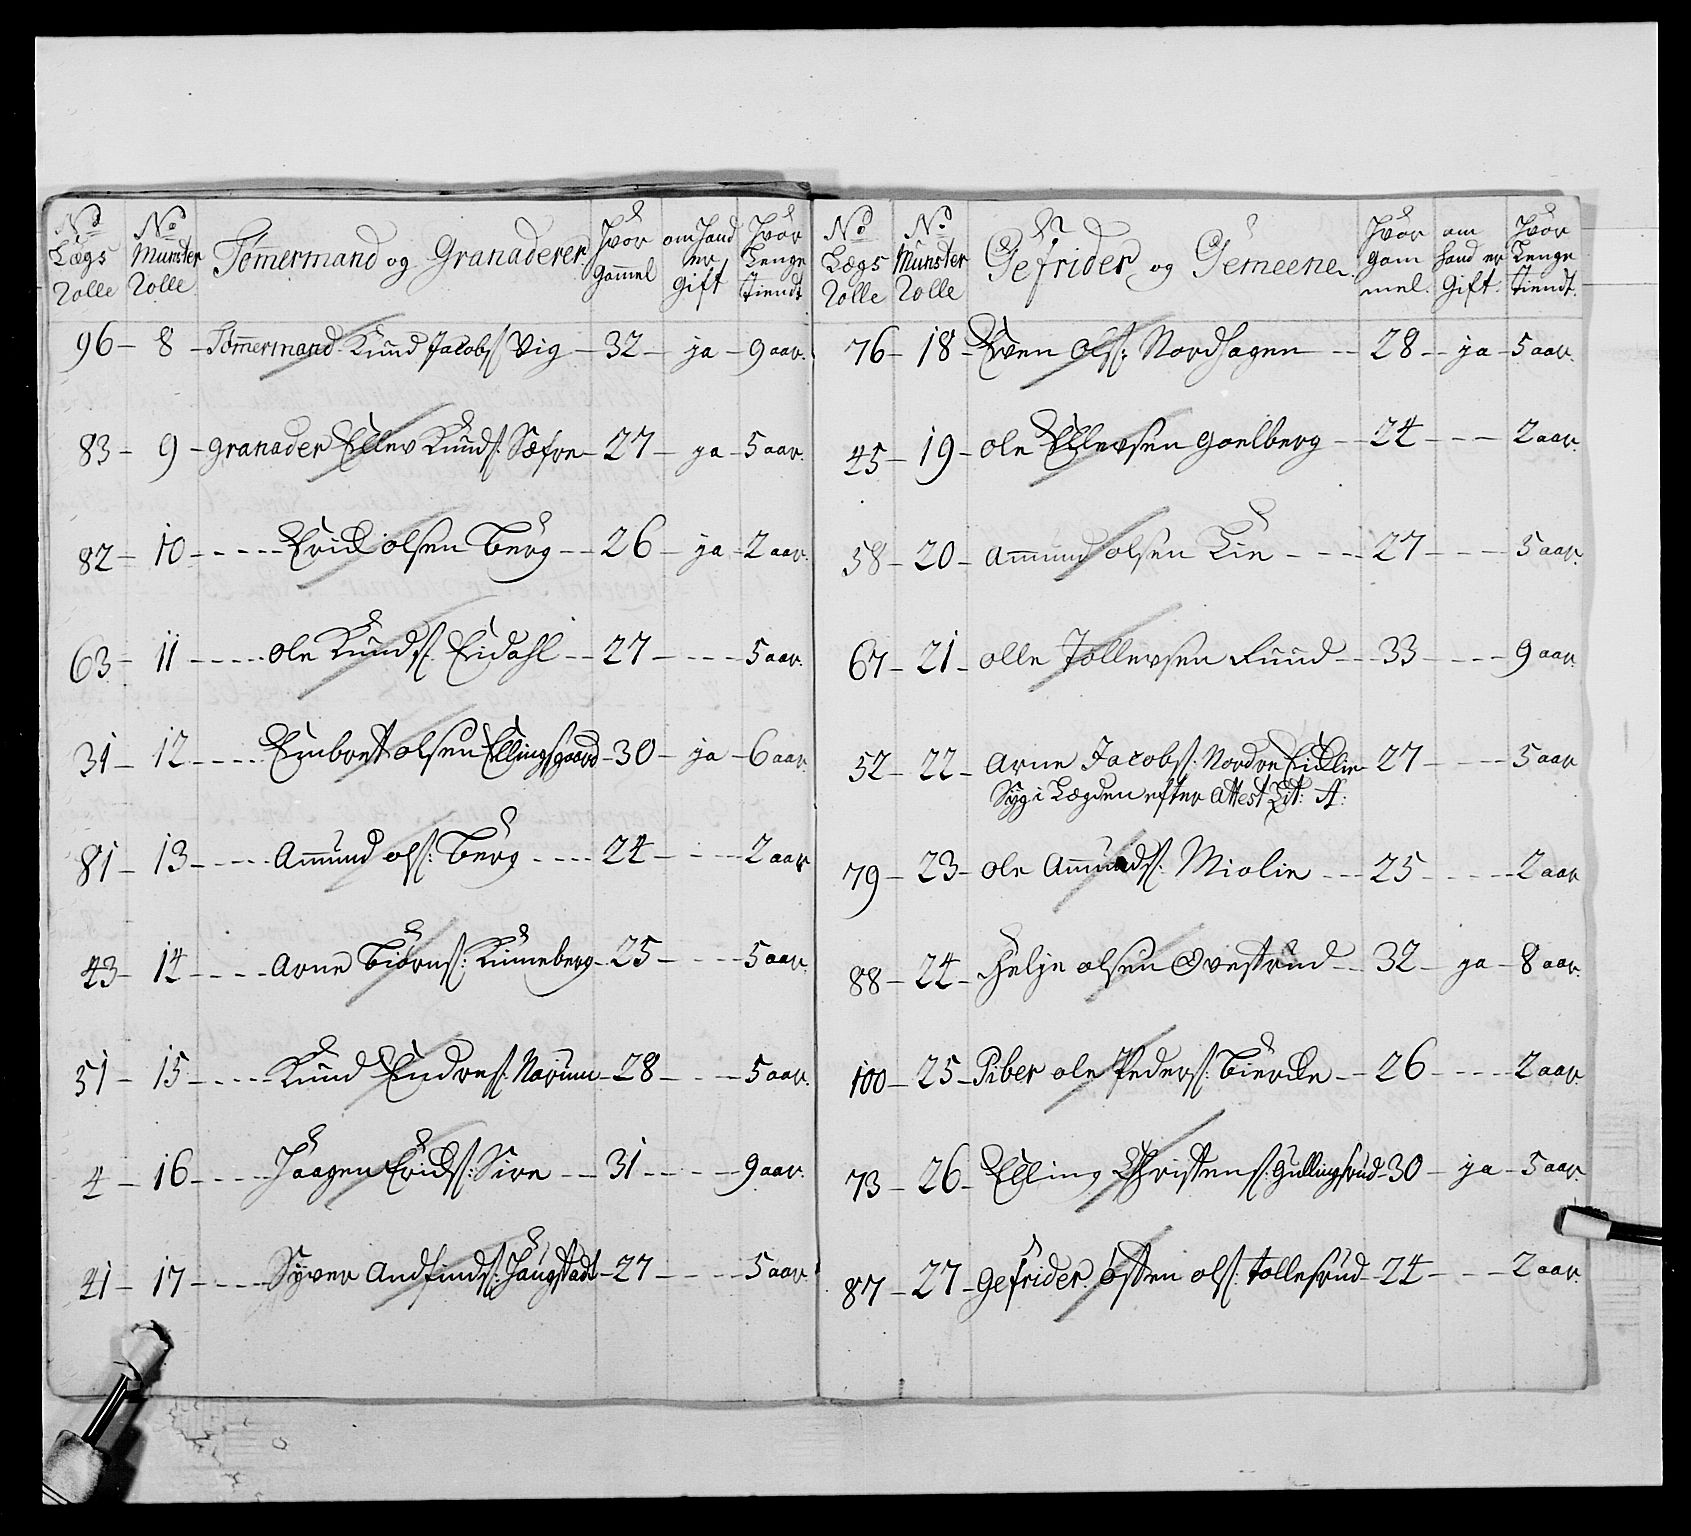 No Lægs Rolle No Munster Rolle Tømermand og Granaderer Hvor Gammel om Hand er Gift Hvor Lenge Tiendt
96 – 8 – Tømmermand Knud Jacobs: Vig – 32 – ja – 9 aar.
83 – 9 – Granader Ellev Knuds: Sæfre – 27 – ja – 5 aar.
82 – 10 – – – – Erick olsen Berg – – 26 – ja – 2 aar.
63 – 11 – – – – ole Knuds: Eidahl – – 27 – – – – 5 aar.
31 – 12 – – – – Embret olsen Ellingsgaard – 30 – ja – 6 aar.
81 – 13 – – – – Amund ols: Berg – – – – 24 – – – – 2 aar
43 – 14 – – – – Arne Biørns: – 25 – – – – 5 aar.
51 – 15 – – – – Knud Endres: Narum – 28 – – – – 5 aar.
4 – 16 – – – – Haagen Ericks: Sire – – 31 – – – – 9 aar.
41 – 17 – – – – Syver Andfinds: Haugstadt – 27 – – – – 5 aar.
No Lægs Rolle No Munster Rolle Gefrider og Gemeene. Hvor Gammel. om Hand er Gift. Hvor Lenge Tiendt.
76 – 18 – Even Ols: Nordhagen – – 28 – ja – 5 aar.
45 – 19 – ole Ellevsen Goelberg – – 24 – – – 2 aar.
58 – 20 – Amund olsen Lie – – – – 27 – – – 5 aar.
67 – 21 – olle Tollevsen Ruud – – 33 – – – – 9 aar.
52 – 22 – Arne Jacobs: Nordre Eicklie – 27 – – – – 5 aar
Syg i Lægden efter Attest Lit: A:
79 – 23 – ole Amunds: Miolie – – – 25 – – – – 2 aar
88 – 24 – Helje olsen Ovestrud – – 32 – ja – 8 aar.
100 – 25 – Piber ole Peders: Biercke – – 26 – – – – 2 aar.
73 – 26 – Elling Christens: Gullingsrud – 30 – ja – 5 aar.
87 – 27 – Gefrider østen ols: tollefsrud – 24 – – – 2 aar.